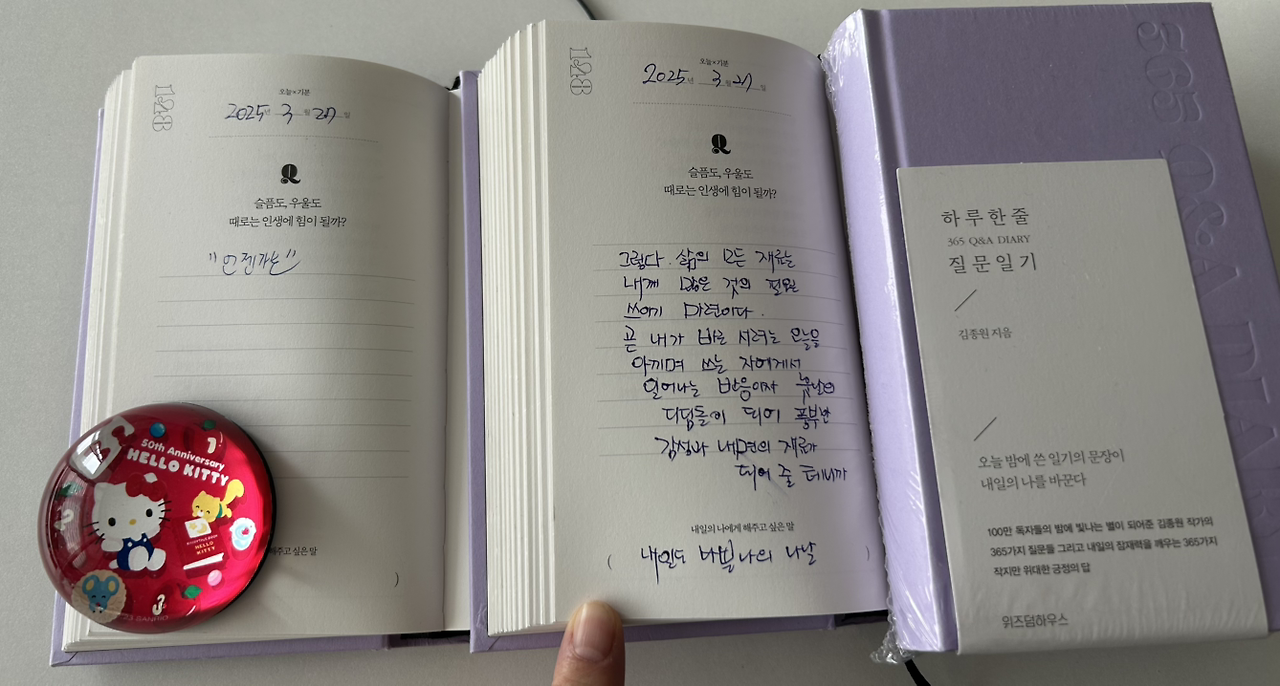 123
오늘×기분
2025년 3월 27일
Q
슬픔도, 우울도
때로는 인생에 힘이 될까?
"언젠가는"
해주고 싶은 말
( )
50th Anniversary
HELLO KITTY
HELLO
KITTY
SANRIO
123
오늘×기분
2025년 3월 27일
Q
슬픔도, 우울도
때로는 인생에 힘이 될까?
그렇다. 삶의 모든 재료는
내게 많은 것의 필요로
쓰이기 마련이다.
곧 내가 바로 서려는 오늘을
아끼며 쓰는 자에게서
일어나는 반응이자 훗날의
디딤돌이 되어 풍부한
감성과 내면의 재료가
되어 줄 테니까
내일의 나에게 해주고 싶은 말
( 내일도 바쁠 나의 나날 )
365 Q&A DIARY
하루 한 줄
365 Q&A DIARY
질문 일기
김종원 지음
오늘 밤에 쓴 일기의 문장이
내일의 나를 바꾼다
100만 독자들의 밤에 빛나는 별이 되어준 김종원 작가의
365가지 질문들 그리고 내일의 잠재력을 깨우는 365가지
작지만 위대한 긍정의 답
위즈덤하우스